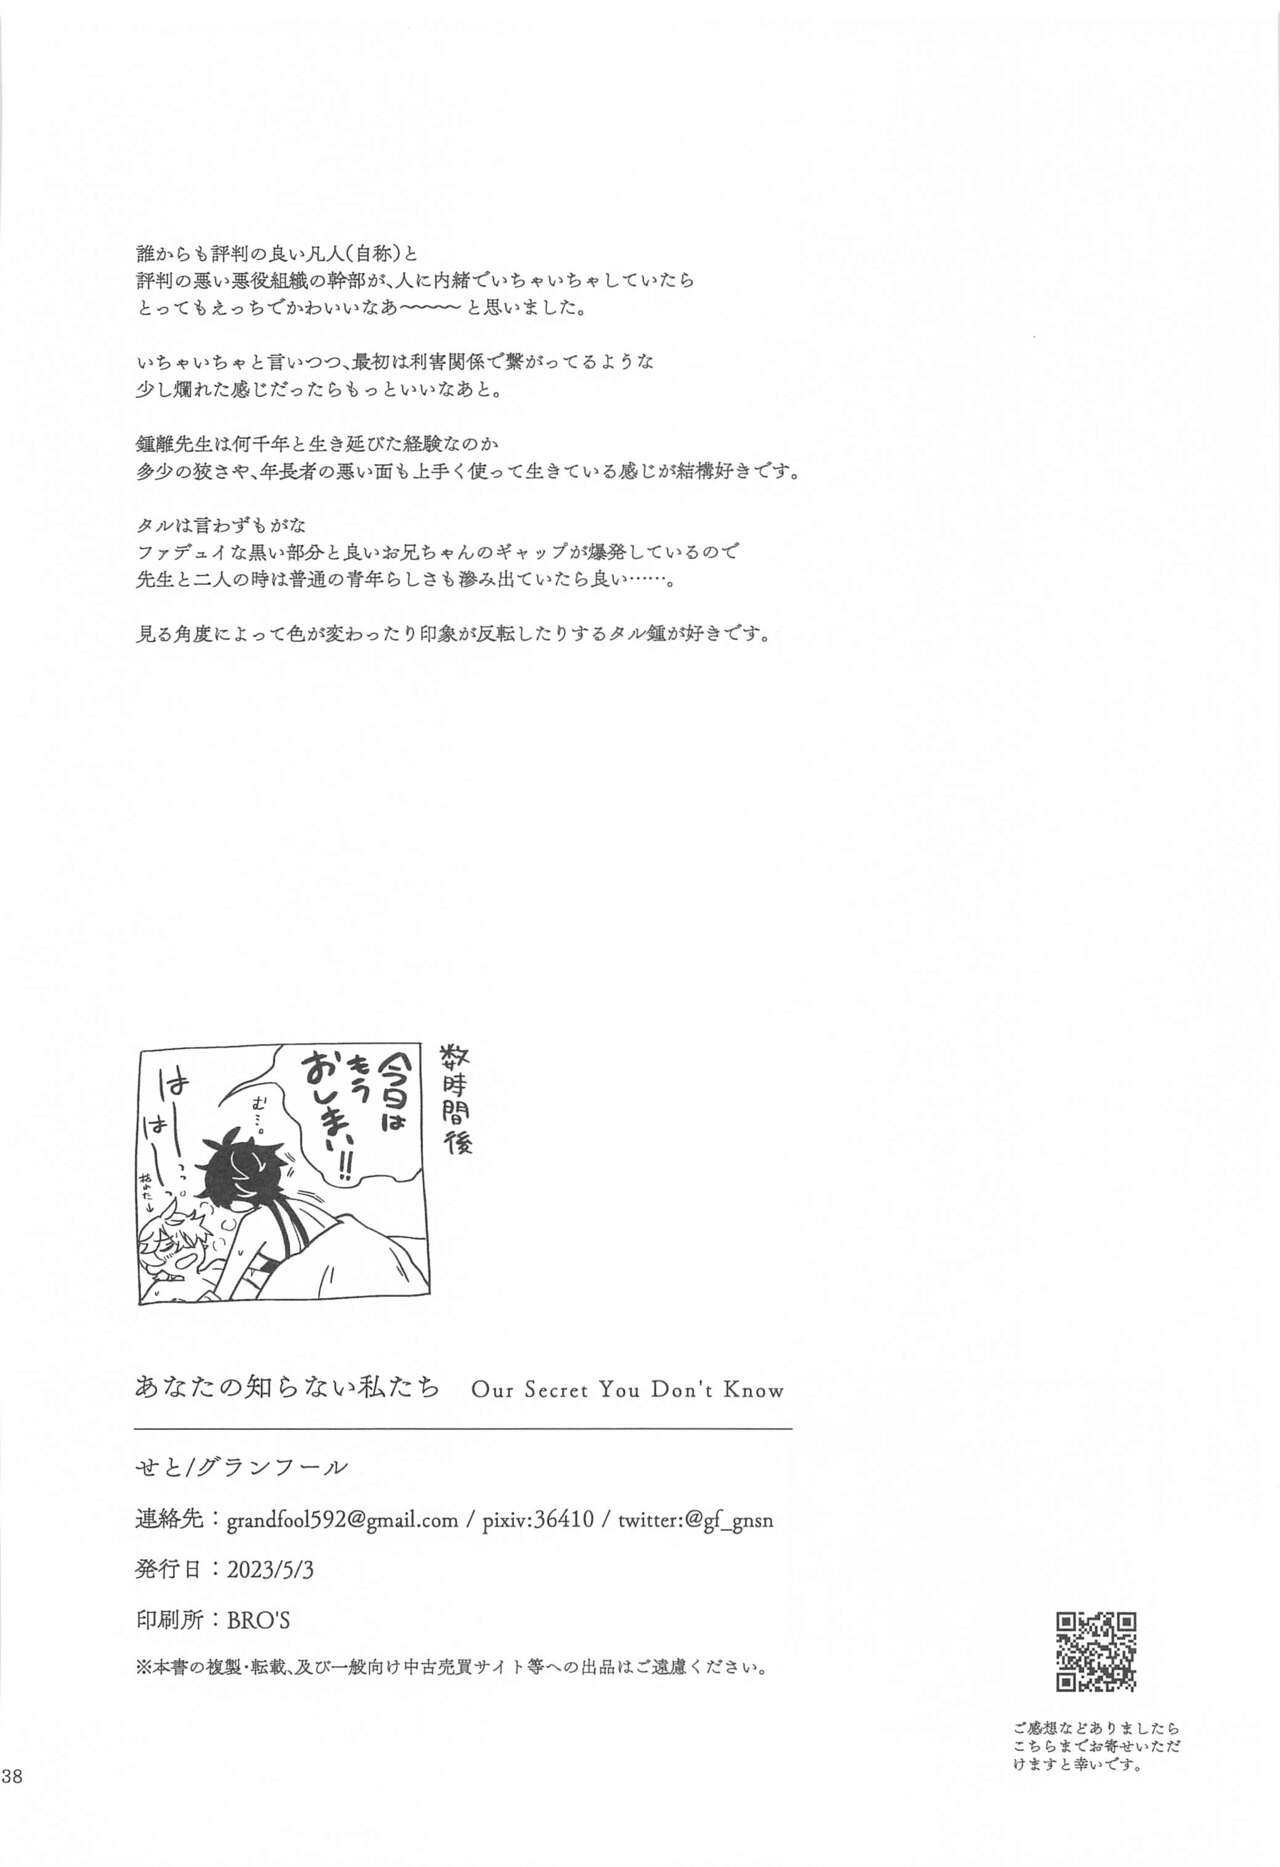 誰からも評判の良い凡人(自称)と
評判の悪い悪役組織の幹部が、人に内緒でいちゃいちゃしていたら
とってもえっちでかわいいなあ〜〜〜〜と思いました。
いちゃいちゃと言いつつ、最初は利害関係で繋がってるような
少し爛れた感じだったらもっといいなあと。
鍾離先生は何千年と生き延びた経験なのか
多少の狡さや、年長者の悪い面も上手く使って生きている感じが結構好きです。
タルは言わずもがな
ファデュイな黒い部分と良いお兄ちゃんのギャップが爆発しているので
先生と二人の時は普通の青年らしさも滲み出ていたら良い……。
見る角度によって色が変わったり印象が反転したりするタル鍾が好きです。
数時間後
今日は
もう
おしまい!!
む…。
はーっ
はーっ
あなたの知らない私たち Our Secret You Don't Know
せと/グランフール
連絡先：grandfool592@gmail.com / pixiv:36410 / twitter:@gf_gnsn
発行日：2023/5/3
印刷所：BRO'S
※本書の複製・転載、及び一般向け中古売買サイト等への出品はご遠慮ください。
ご感想などありましたら
こちらまでお寄せいただ
けますと幸いです。
38